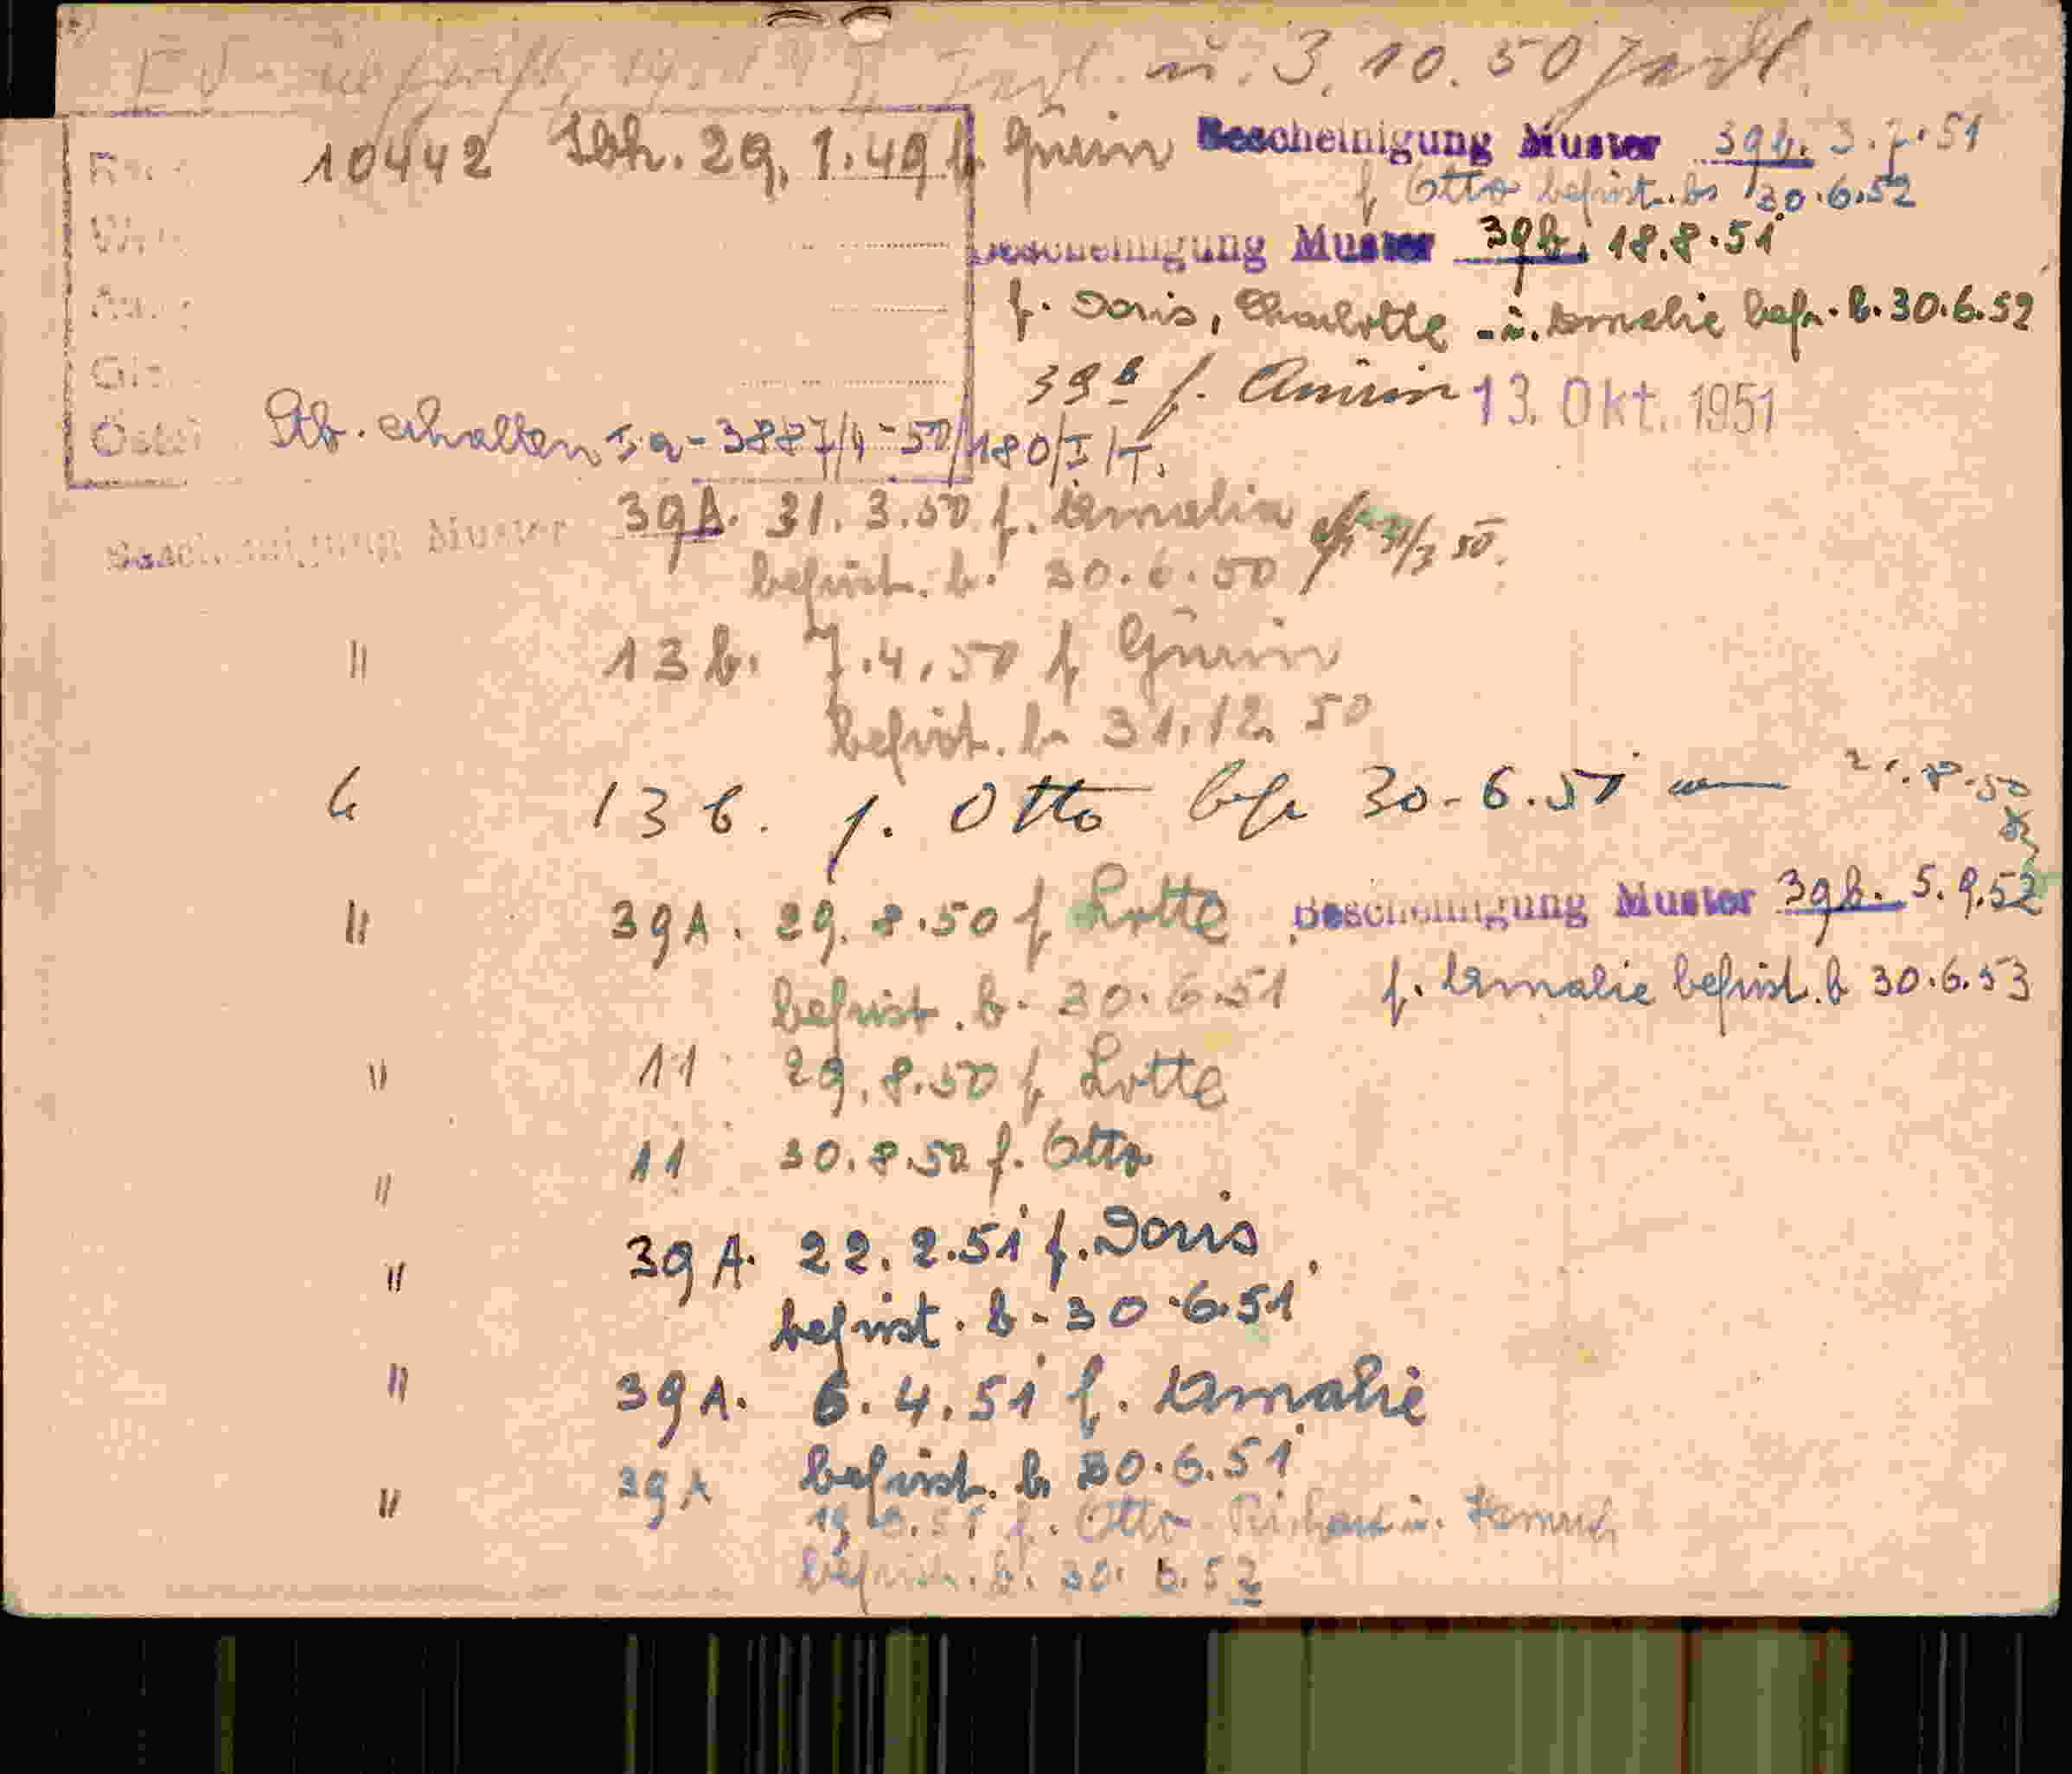 ü. 3. 10. 50
10442 Ibh. 29. 1. 49 f. Erwin
Bescheinigung Muster 39b. 3.7.51
f. Otto befrist. bs 30.6.52
Bescheinigung Muster 39b. 18.8.51
f. Doris, Charlotte u. Amalie befr. b. 30.6.52
39b f. 13. Okt. 1951
Stb. erhalten 3887/4-50/180/I/T.
Bescheinigung Muster 39A. 31. 3. 50 f. Amalia
befrist. b. 30. 6. 50 31/3 50.
" 13 b. 7. 4. 50 f Erwin
befrist. b. 31. 12. 50
13 b. f. Otto befr 30-6.51
" 39A. 29. 8. 50 f Lotte
befrist. b. 30. 6. 51
Bescheinigung Muster 39b. 5. 9. 52
f. Amalie befrist. b 30.6.53
" 11 29. 8. 50 f Lotte
" 11 30. 8. 50 f. Otto
" 39 A. 22. 2. 51 f. Doris
befrist. b. 30. 6. 51
" 39A. 6. 4. 51 f. Amalie
befrist. b. 30. 6. 51
" 39A f. Otto Richard u.
befrist. b. 30. 6. 52